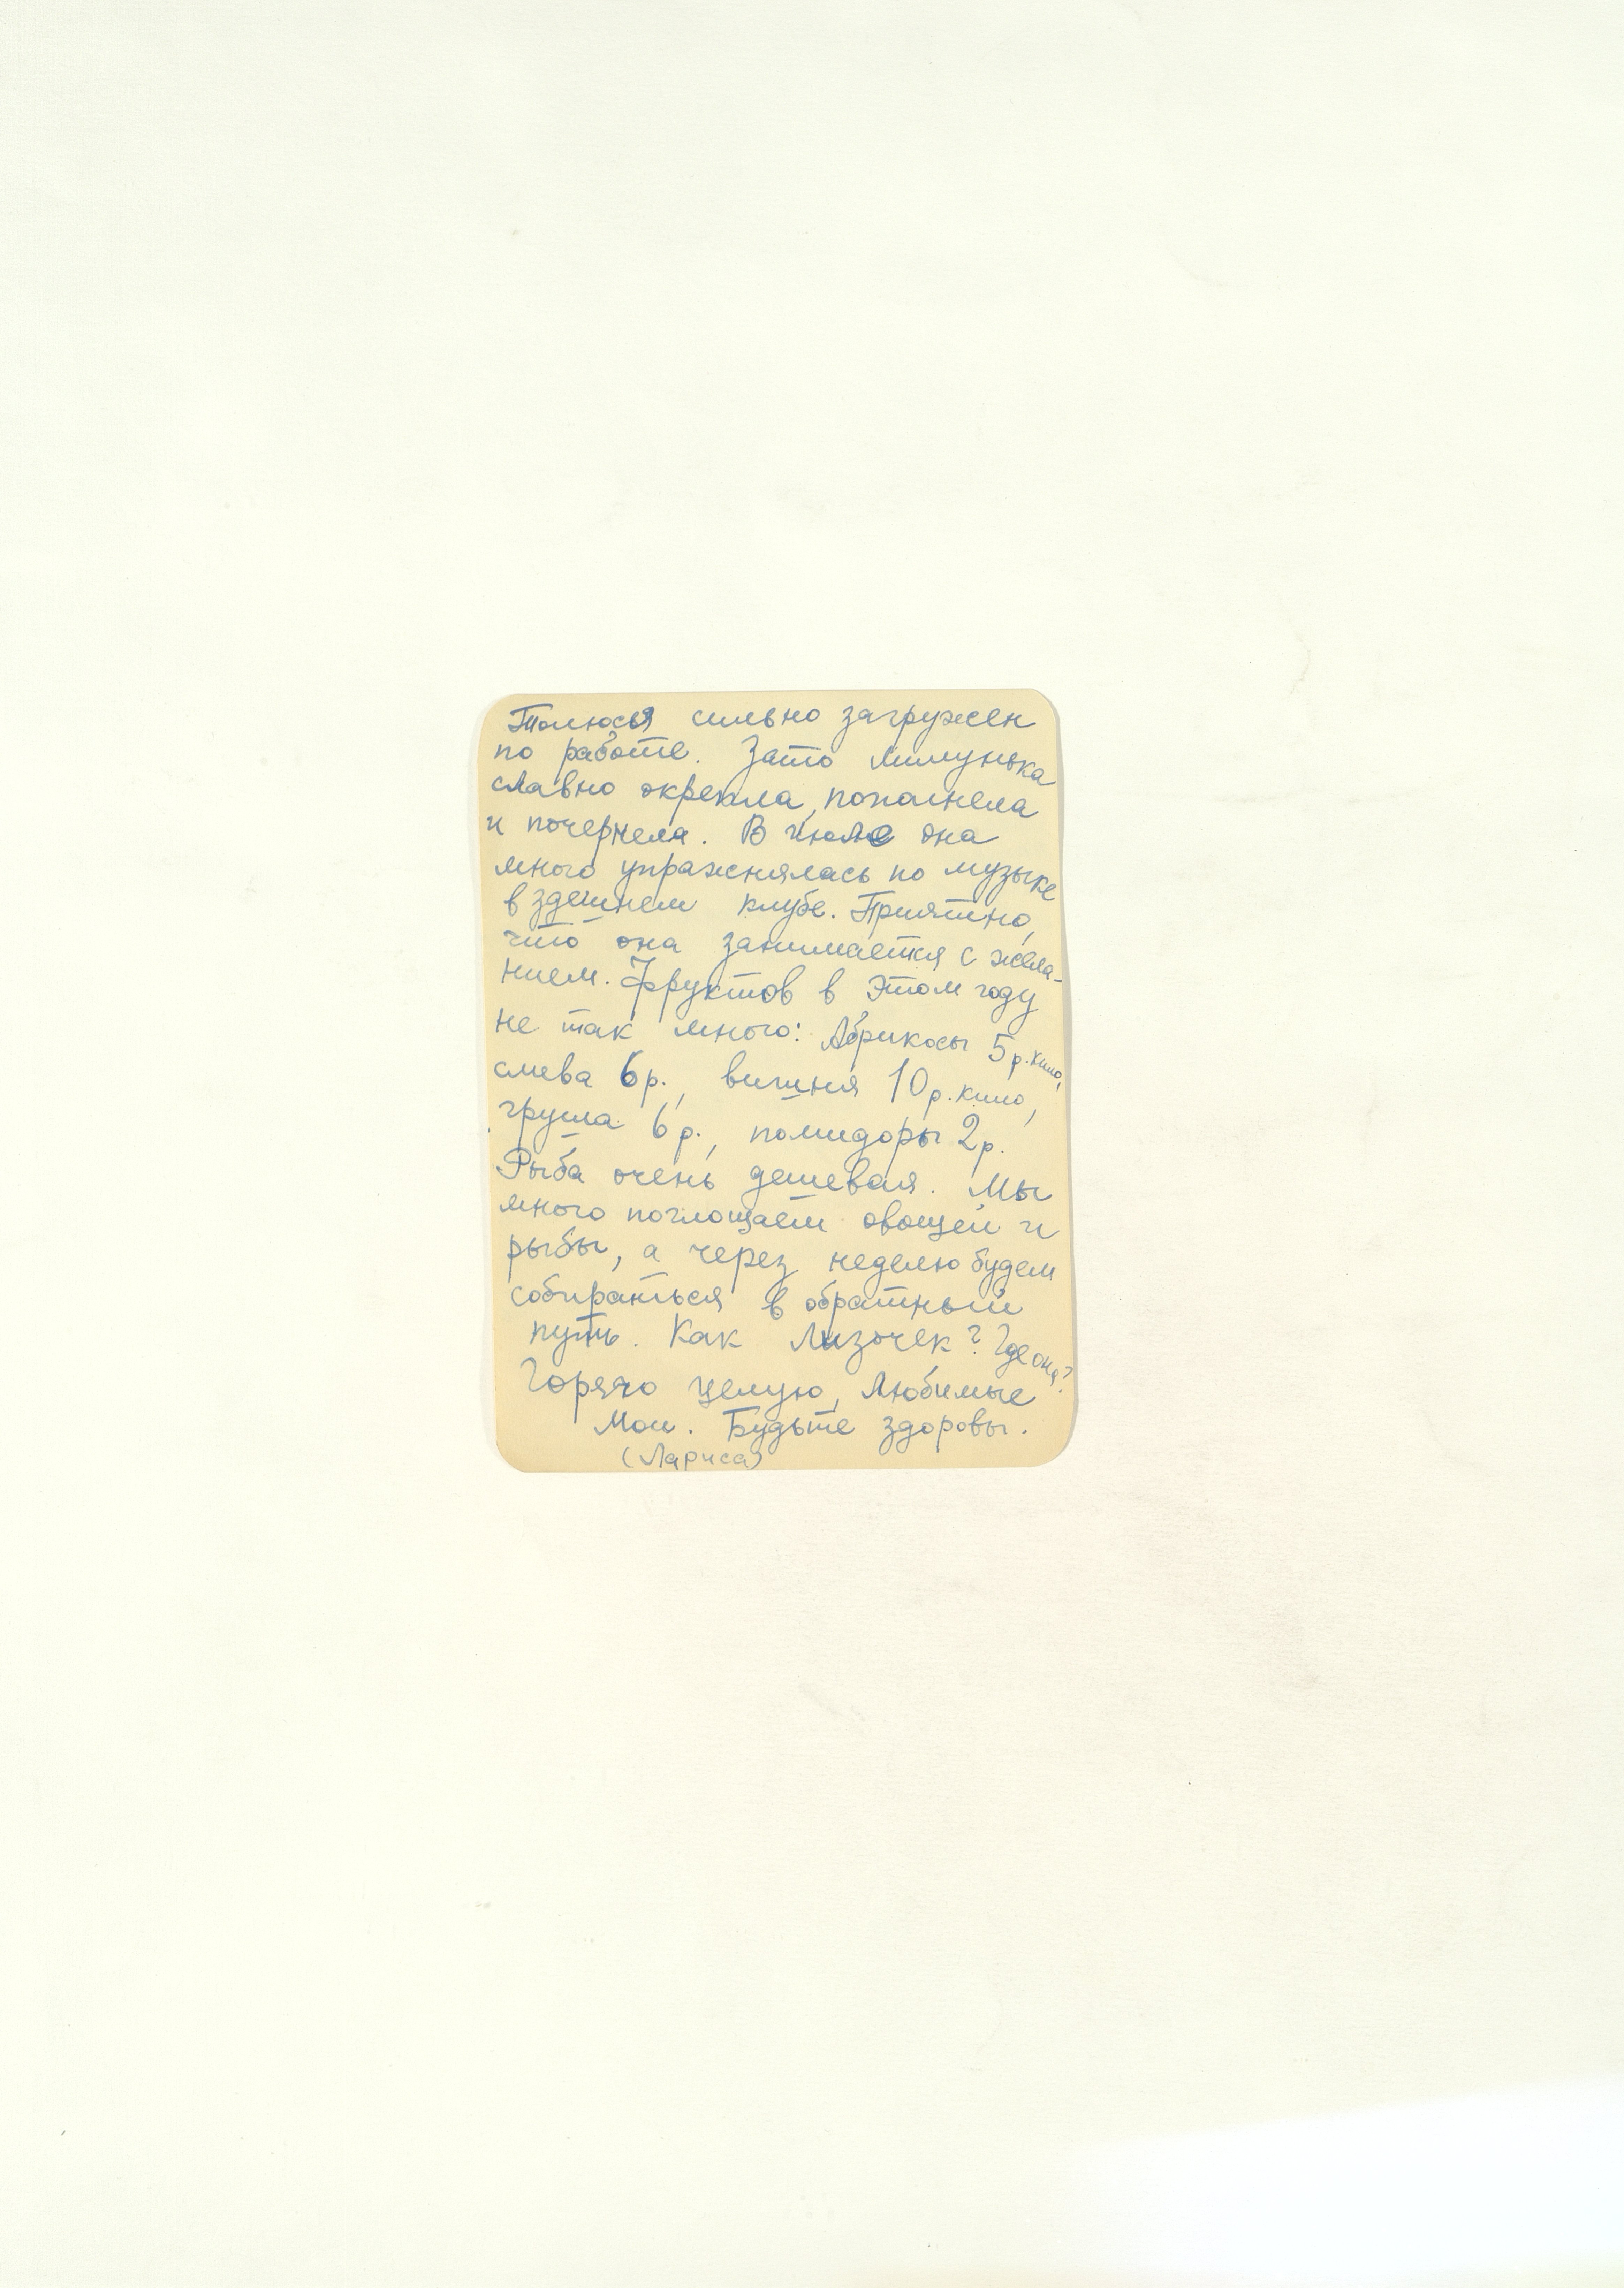 Толюсья сильно загружен
по работе. Зато Милунька
славно окрепла, пополнела
и почернела. В июле она
много упражнялась по музыке
в здешнем клубе. Приятно,
что она занимается с жела-
нием. Фруктов в этом году
не так много: Абрикосы 5 р. кило,
слива 6 р., вишня 10 р. кило,
груша 6 р., помидоры 2 р.
Рыба очень дешевая. Мы
много поглощаем овощей и
рыбы, а через неделю будем
собираться в обратный
путь. Как Лизочек? Где она?
Горячо целую, любимые
мои. Будьте здоровы.
(Лариса)